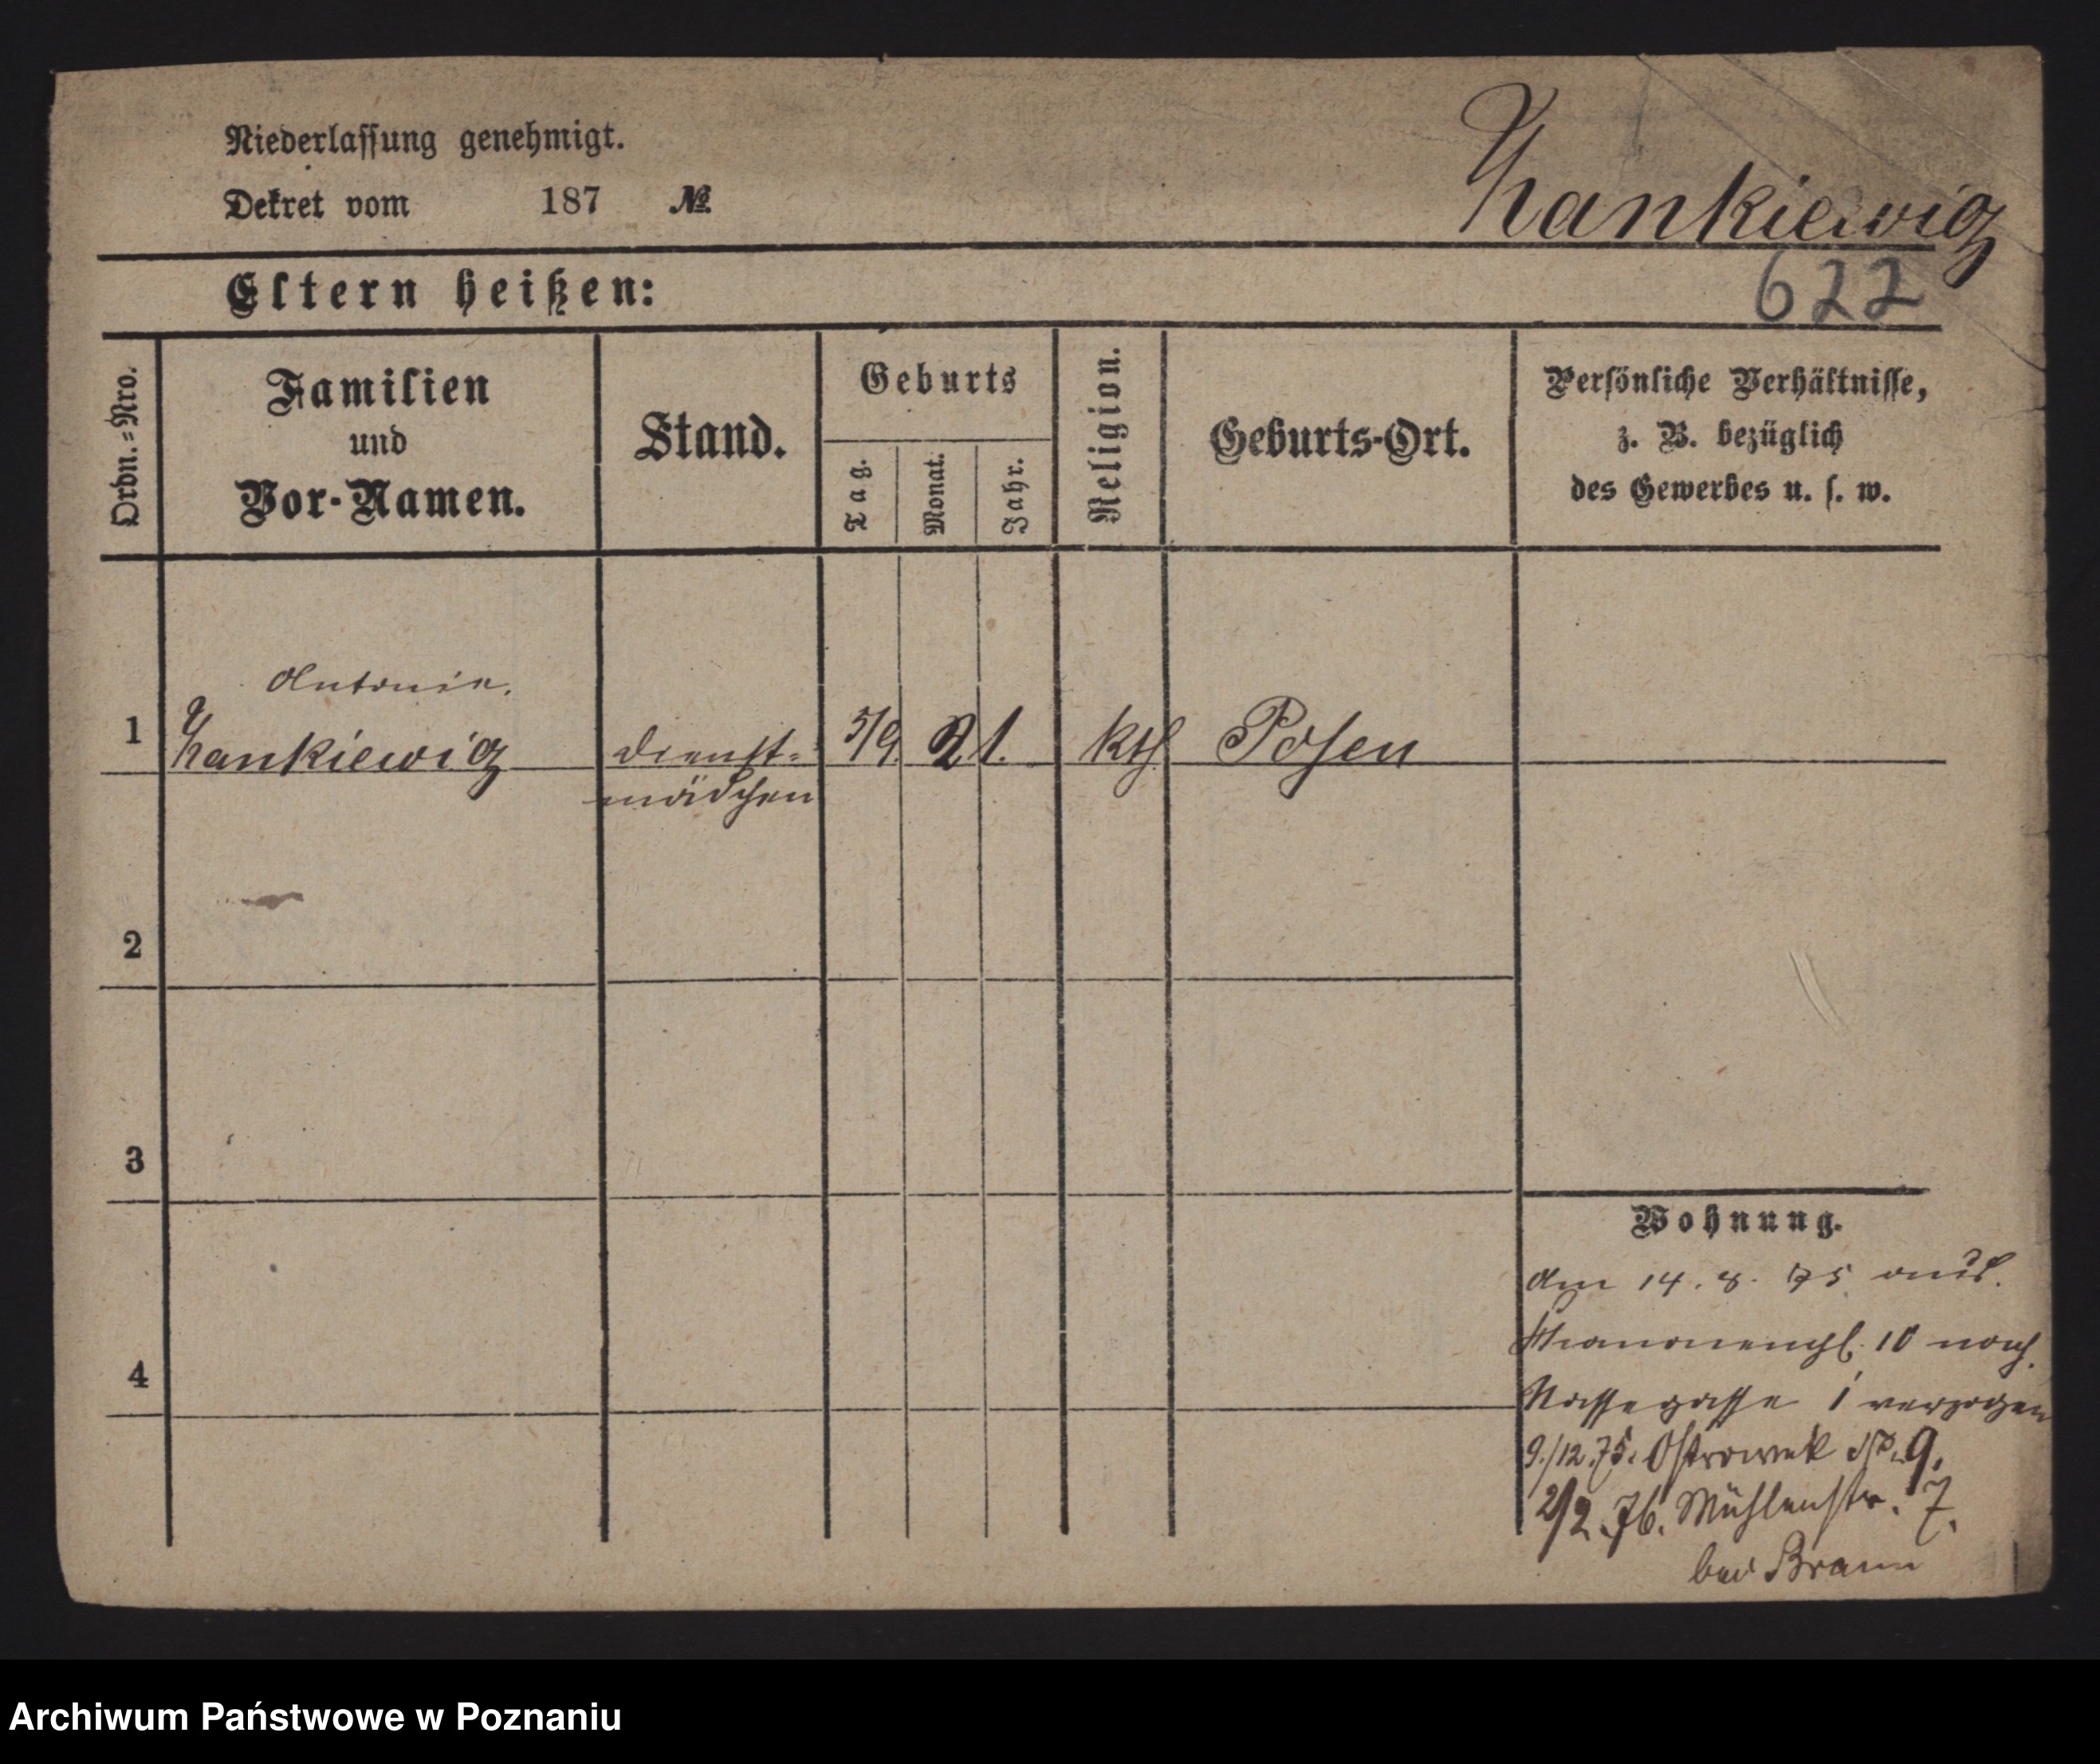 Niederlassung genehmigt.
Dekret vom 187 №
Hankiewicz
622
Eltern heißen:
Ordn.=Nro.
Familien
und
Vor-Namen.
Stand.
Geburts
Tag.
Monat.
Jahr.
Religion.
Geburts-Ort.
Persönliche Verhältnisse,
z. B. bezüglich
des Gewerbes u. s. w.
Antonie.
1 Hankiewicz Dienst= 5/9. 21. kth. Posen
mädchen
2
3
4
Wohnung.
Am 14. 8. 75 aus.
10 nach
Nassegasse 1 verzogen
9./12.75. Ostrowek No. 9.
2/2. 76. Mühlenstr. 7.
bei Braun
Archiwum Państwowe w Poznaniu